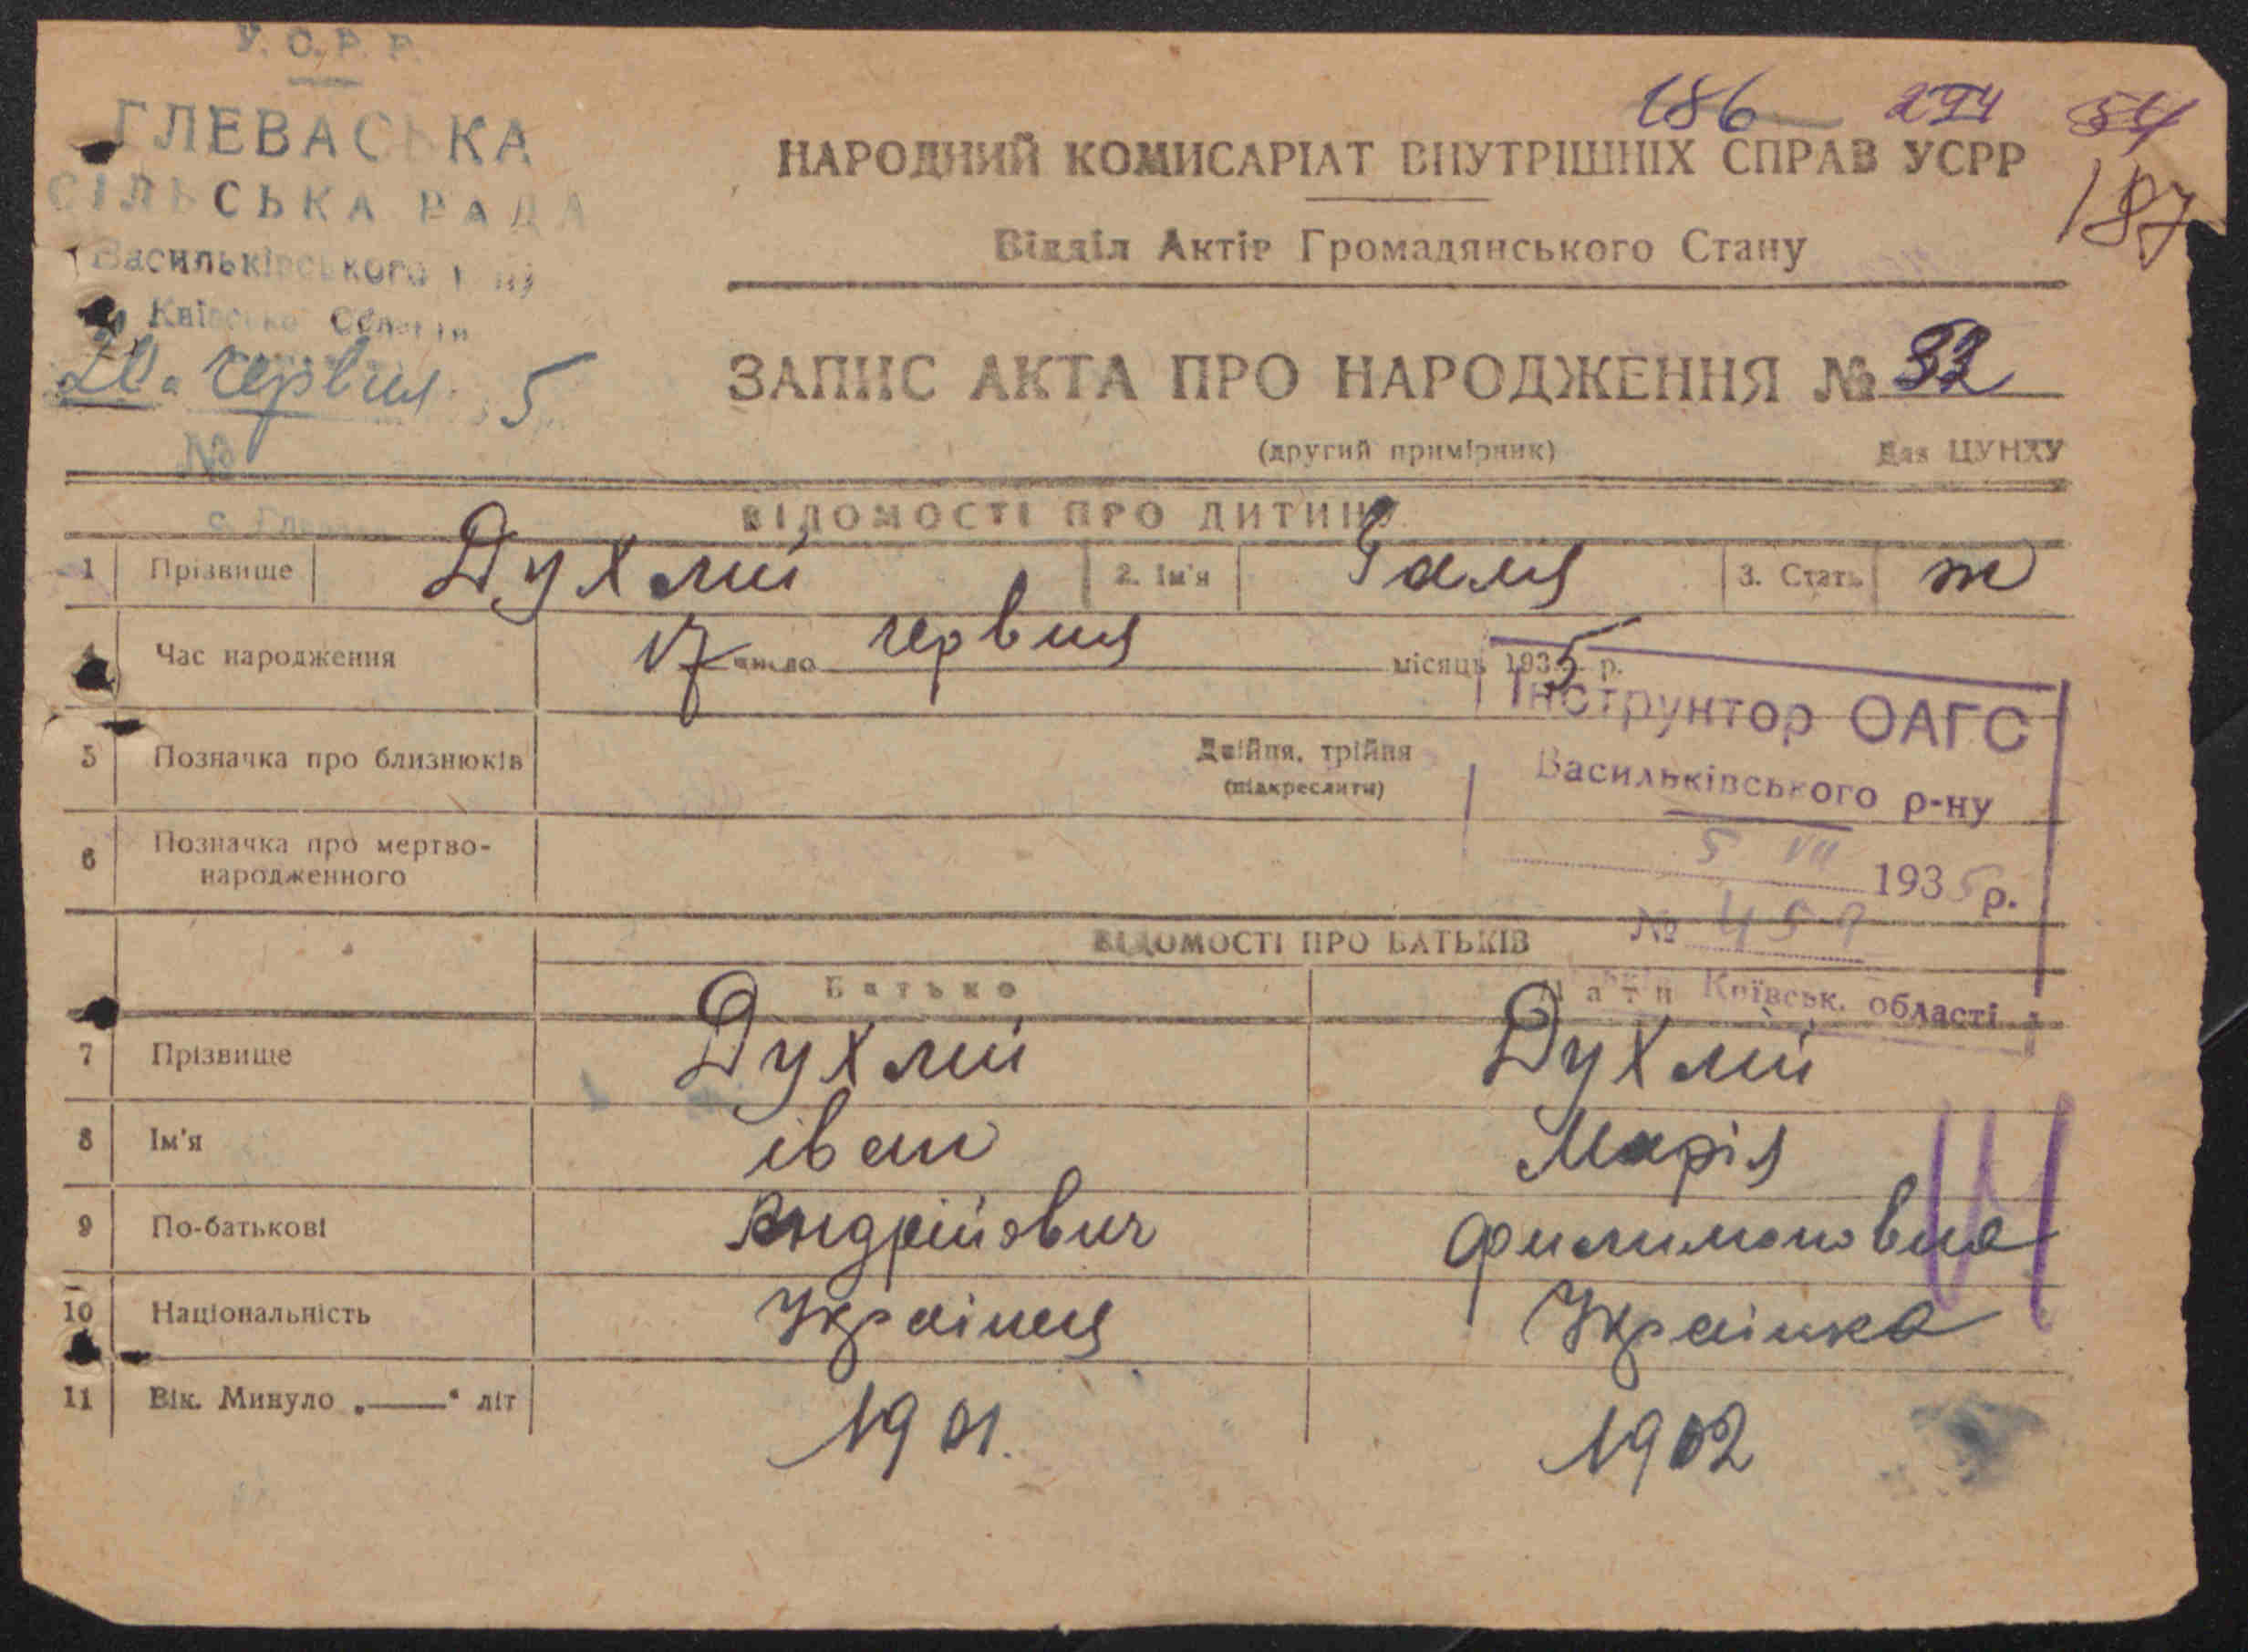 У.С.Р.Р.
ГЛЕВАСЬКА
СІЛЬСЬКА РАДА
Васильківського р-ну
Київської Области
20 червня 5
№
с. Глеваха
186 294 54
187
НАРОДНИЙ КОМИСАРІАТ ВНУТРІШНІХ СПРАВ УСРР
Відділ Актів Громадянського Стану
ЗАПИС АКТА ПРО НАРОДЖЕННЯ № 32
(другий примірник) Для ЦУНХУ
ВІДОМОСТІ ПРО ДИТИНУ
1 Прізвище Духлий 2. Ім'я Галя 3. Стать ж
4 Час народження 17 число червня місяць 1935 р.
5 Позначка про близнюків Двійня, трійня
(підкреслити)
6 Позначка про мертво-
народженного
Інструктор ОАГС
Васильківського р-ну
5 VII 1935 р.
№ 459
Київськ. області
ВІДОМОСТІ ПРО БАТЬКІВ
Батько Мати
7 Прізвище Духлий Духлий
8 Ім'я іван Марія
9 По-батькові Андрійович Филимоновна
10 Національність Українец Українка
11 Вік. Минуло „——“ літ 1901. 1902